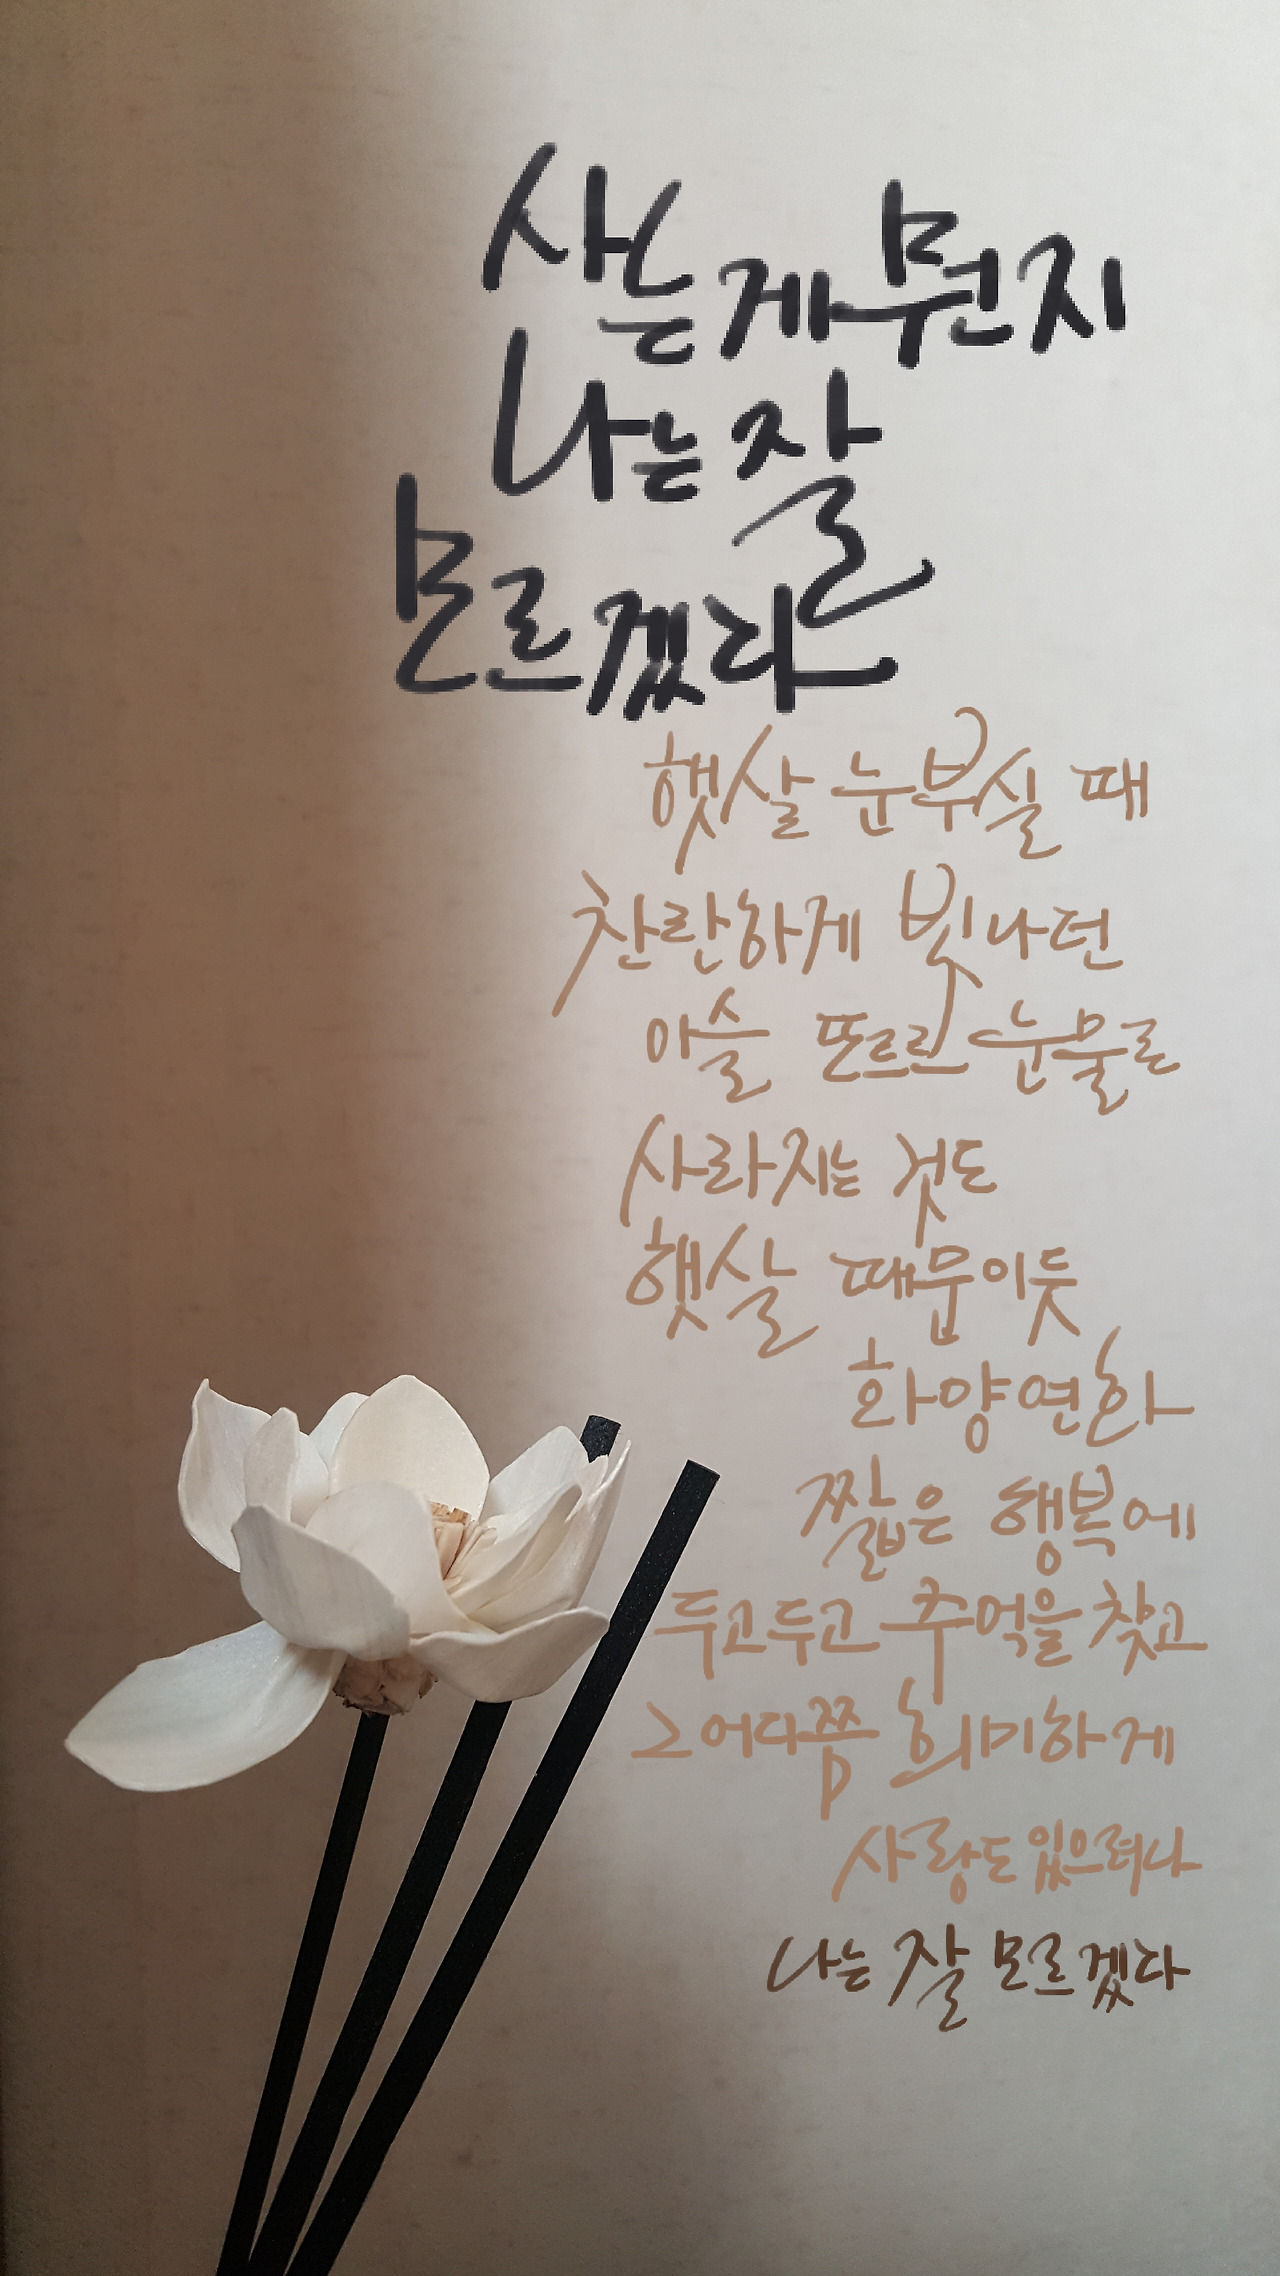 사는게 뭔지
나는 잘
모르겠다
햇살 눈부실 때
찬란하게 빛나던
이슬 또르르 눈물로
사라지는 것도
햇살 때문이듯
화양연화
짧은 행복에
두고두고 추억을 찾고
그 어디쯤 희미하게
사랑도 있으려나
나는 잘 모르겠다